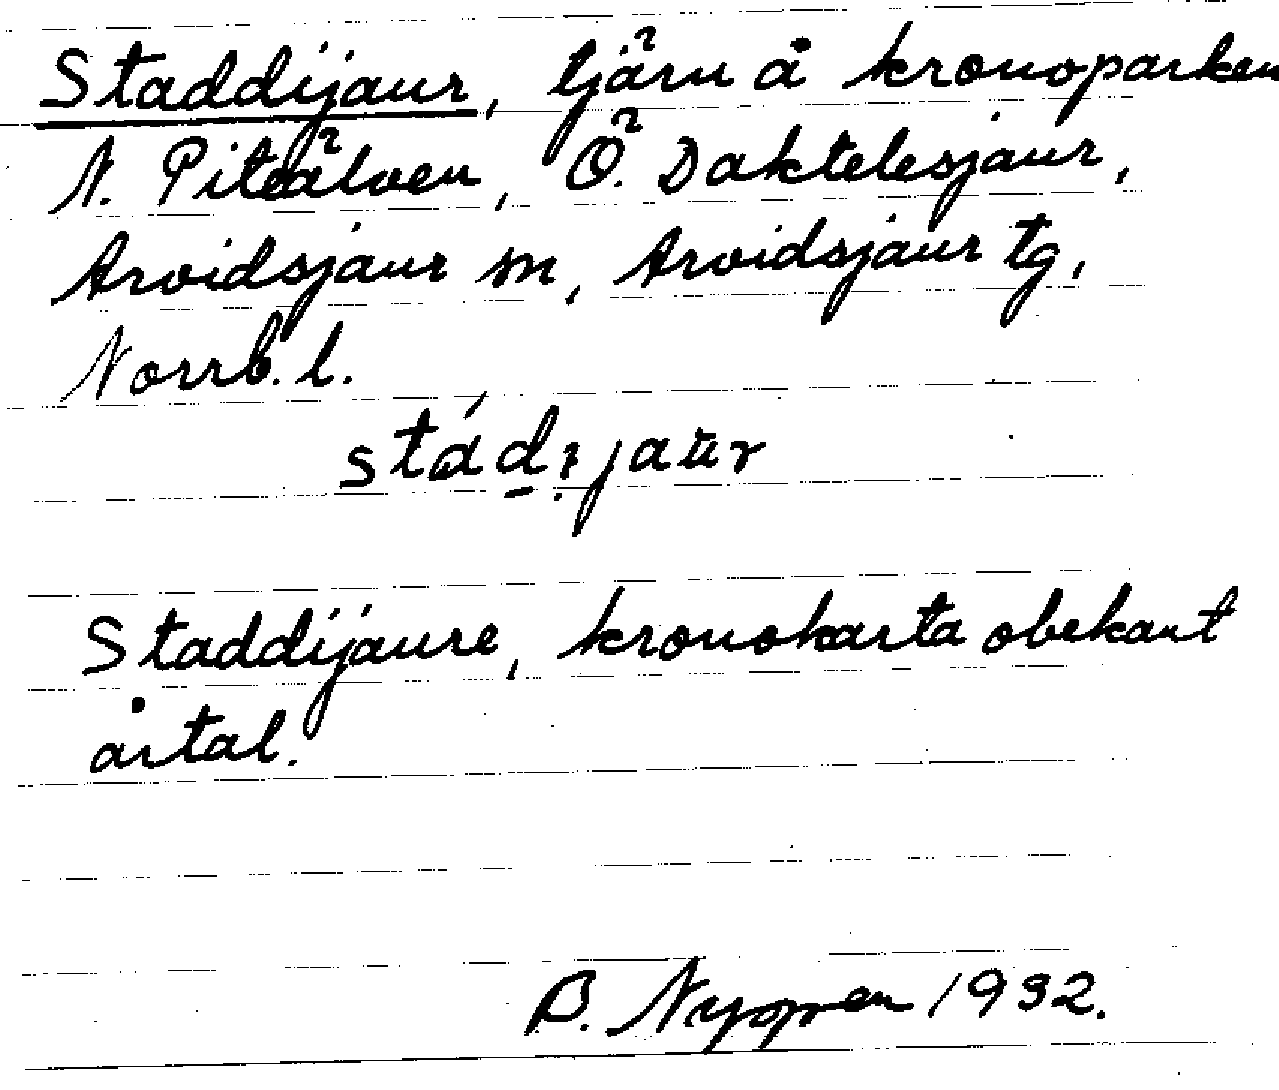 Staddijaur, tjärn å kronoparken
N. Piteälven, Ö. Daktelesjaur,
Arvidsjaur sn, Arvidsjaur tg,
Norrb. l.
Staddijaure, kronokarta obekant
årtal.
B. Nyppen 1932.